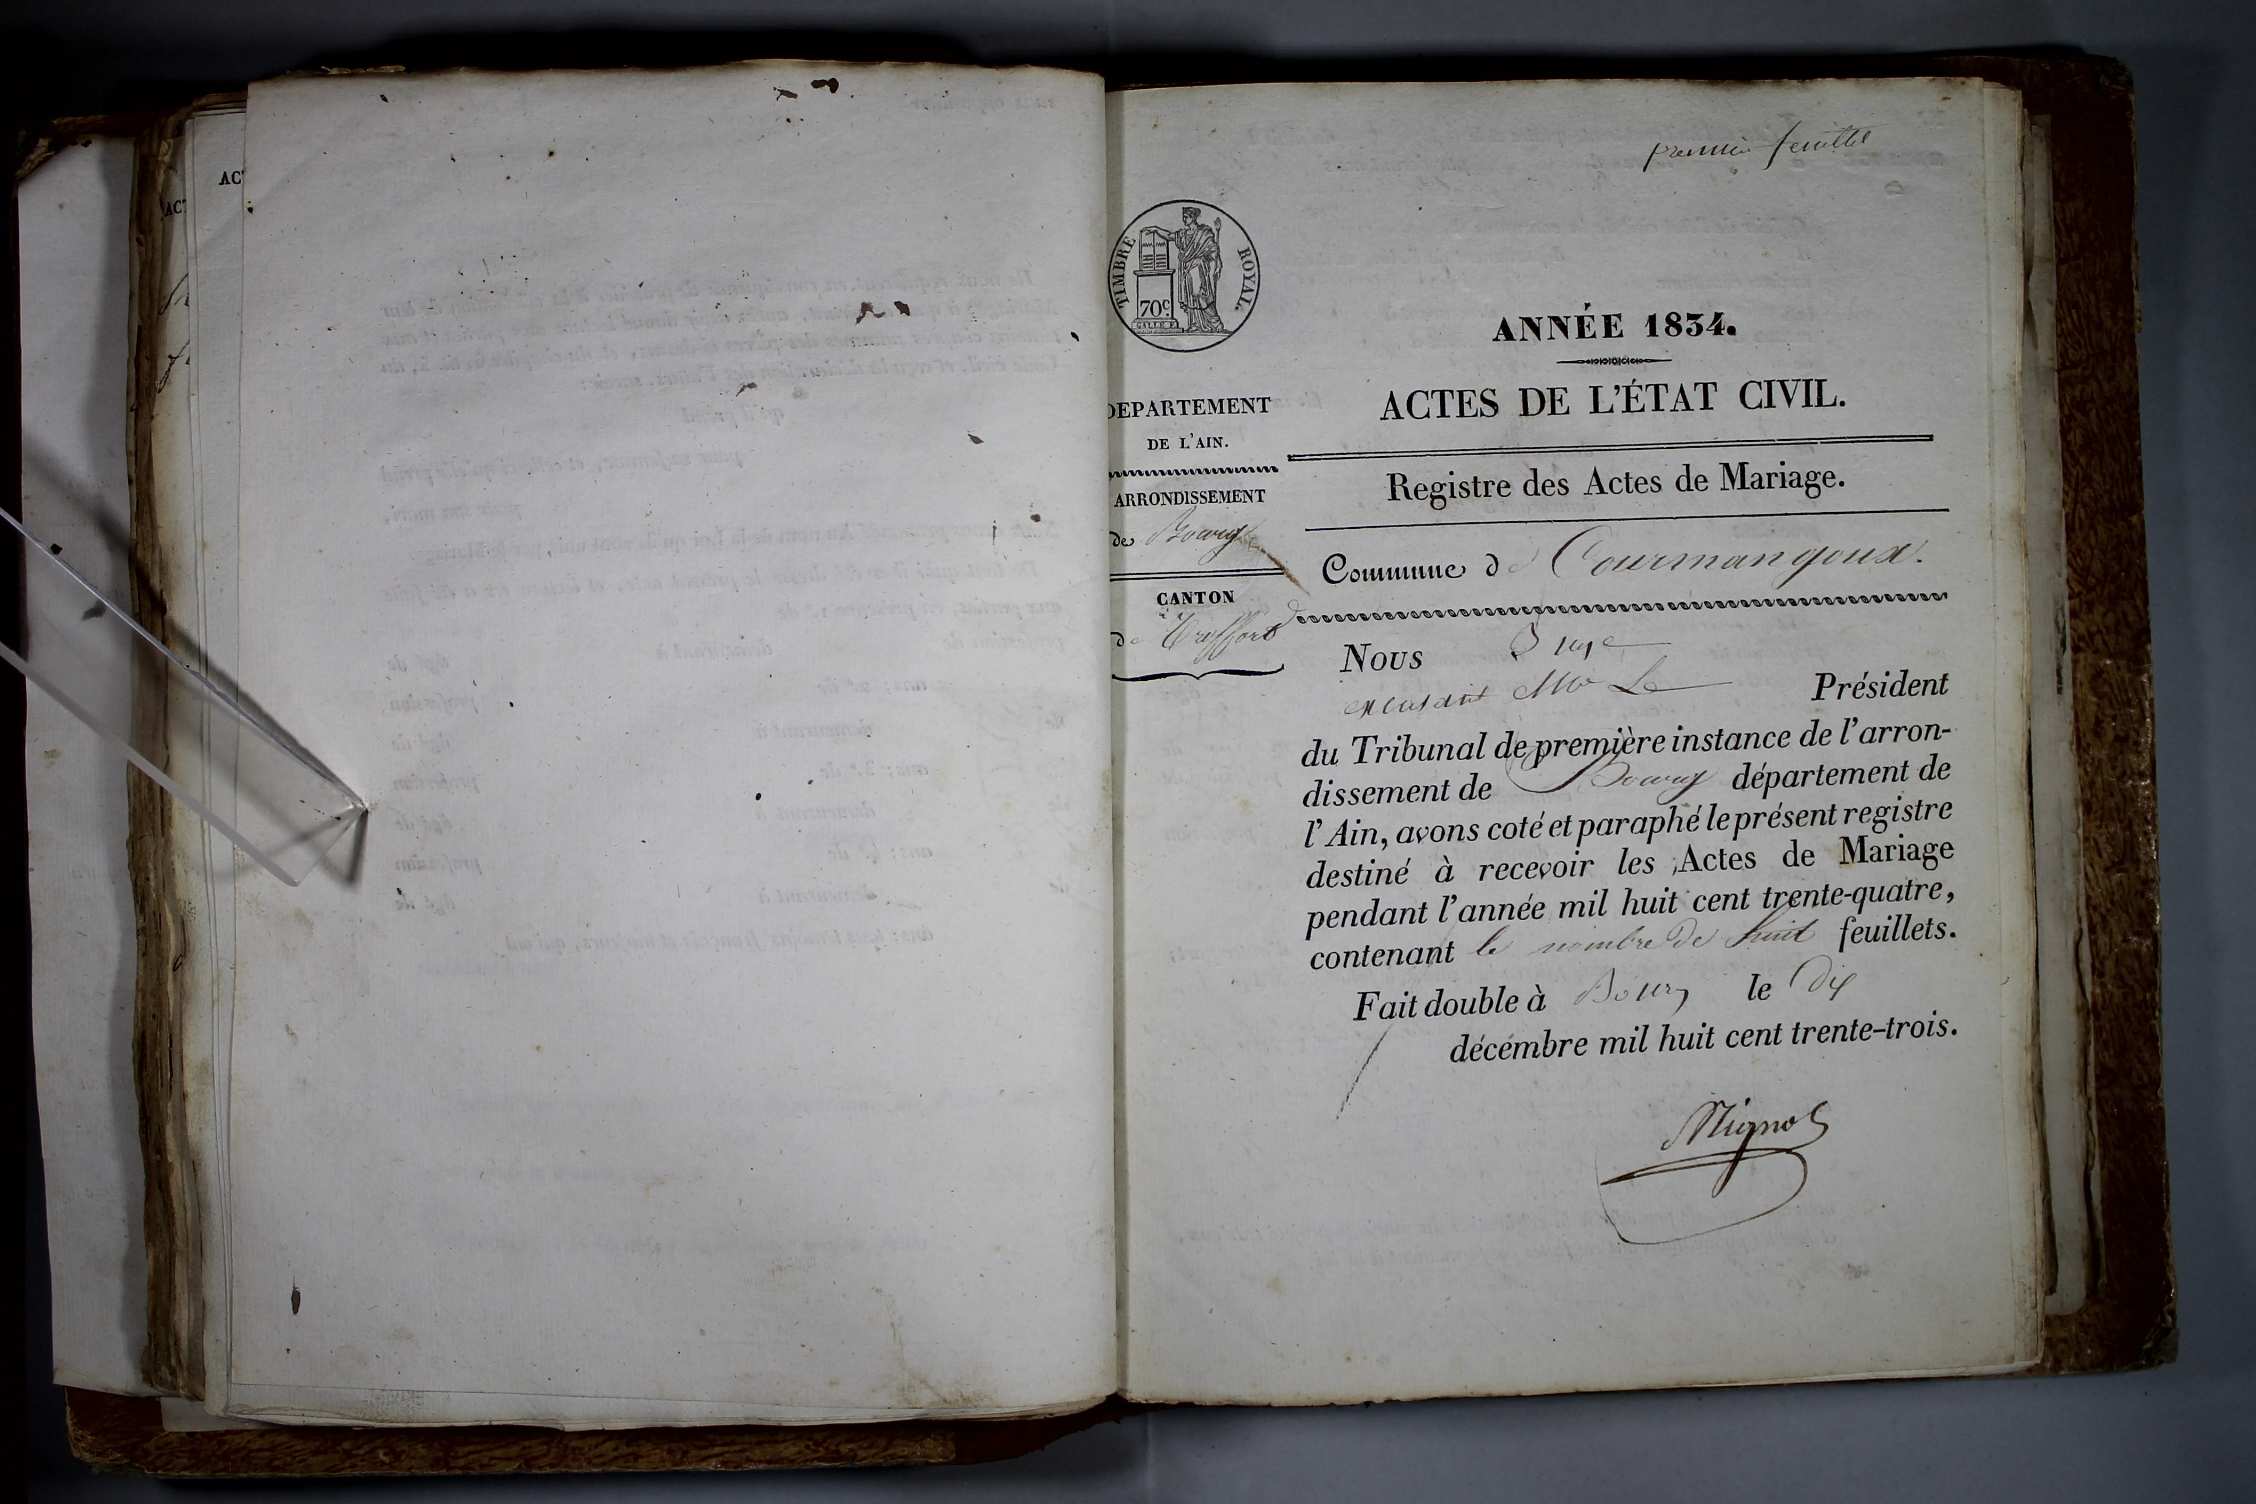 AC
ACT
premier feuillet
TIMBRE ROYAL.
70C
ANNÉE 1834.
ACTES DE L'ÉTAT CIVIL.
Registre des Actes de Mariage.
DEPARTEMENT
DE L'AIN.
ARRONDISSEMENT
de Bourg
CANTON
de Treffort
Commune de Courmangoux.
Nous Juge
Mr Le Président
du Tribunal de première instance de l'arron-
dissement de Bourg département de
l'Ain, avons coté et paraphé le présent registre
destiné à recevoir les Actes de Mariage
pendant l'année mil huit cent trente-quatre,
contenant le nombre de huit feuillets.
Fait double à Bourg le Dix
décembre mil huit cent trente-trois.
Mignot